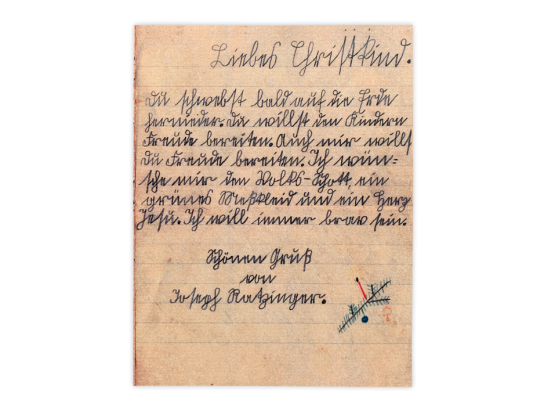 Liebes Christkind.
Du schwebst bald auf die Erde
hernieder. Da willst den Kindern
Freude bereiten. Auch mir willst
du Freude bereiten. Ich wün-
sche mir den Volks-Schott, ein
grünes Meßkleid und ein Herz
Jesu. Ich will immer brav sein.
Schönen Gruß
von
Joseph Ratzinger.